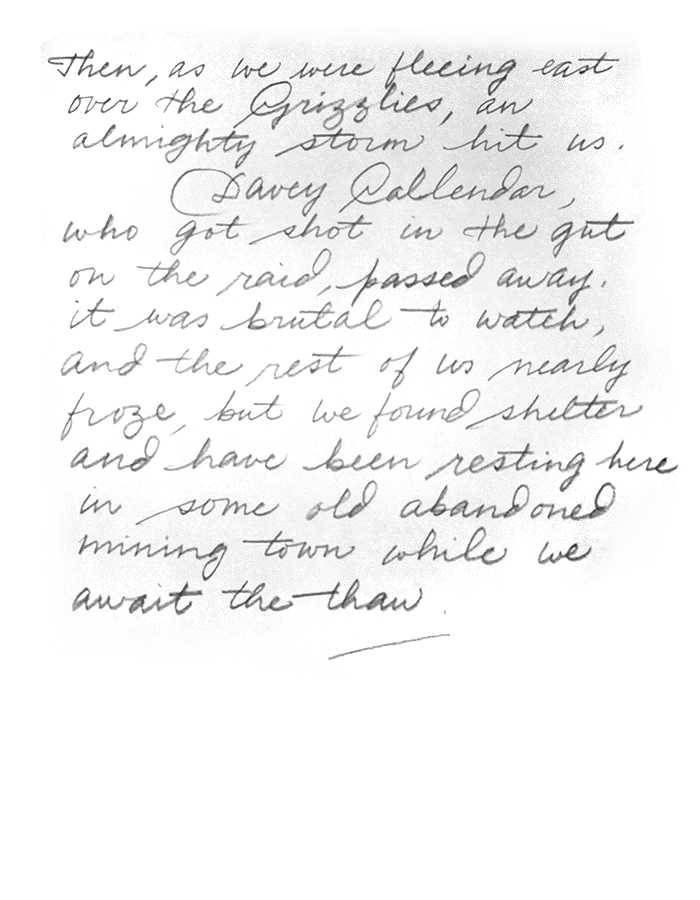 Then, as we were fleeing east
over the Grizzlies, an
almighty storm hit us.
Davey Callendar,
who got shot in the gut
on the raid, passed away.
it was brutal to watch,
and the rest of us nearly
froze, but we found shelter
and have been resting here
in some old abandoned
mining town while we
await the thaw